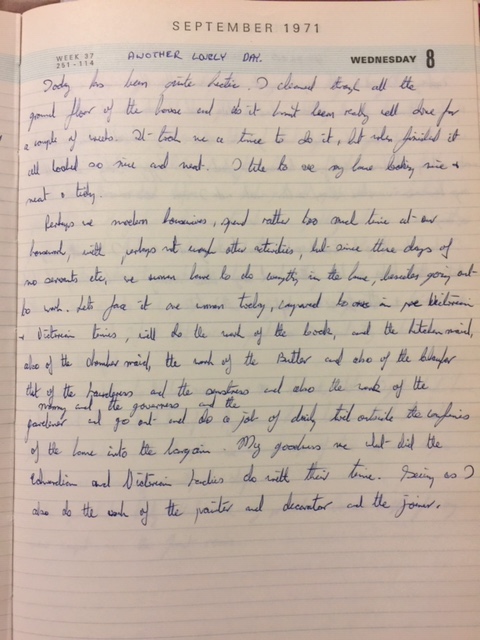 SEPTEMBER 1971
WEEK 37
251-114
ANOTHER LOVELY DAY.
WEDNESDAY 8
Today has been quite hectic. I cleaned through all the
ground floor of the house and as it hasn't been really well done for
a couple of weeks. It took me a time to do it, but when finished it
all looked so nice and neat. I like to see my home looking nice +
neat & tidy.
Perhaps we modern housewives, spend rather too much time at our
housework, with perhaps not enough other activities, but since these days of
no servants etc, we women have to do everything in the home, besides going out
to work. Lets face it one woman today, compared to in pre
+ Victorian times, will do the work of the cook, and the kitchen maid,
also of the chamber maid, the work of the Butler and also of the
that of the laundress and the seamstress and also the work of the
nanny and the governess and the
gardener and go out and do a job of daily toil outside the confines
of the home into the bargain. My goodness me what did the
Edwardian and Victorian Ladies do with their time. Seeing as I
also do the work of the painter and decorator and the joiner.